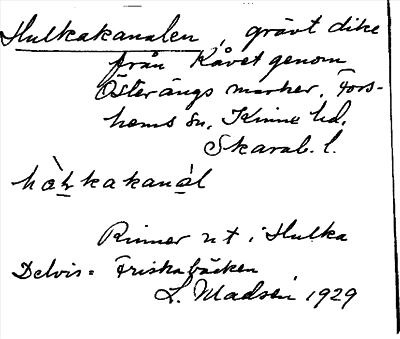 Hulkakanalen, grävt dike
från Kåvet genom
Österängs marker, Fors-
hems sn, Kinne hd,
Skarab. l.
hàḻkakanál
Rinner ut i Hulka
Delvis = Friskabäcken
L. Madsén 1929